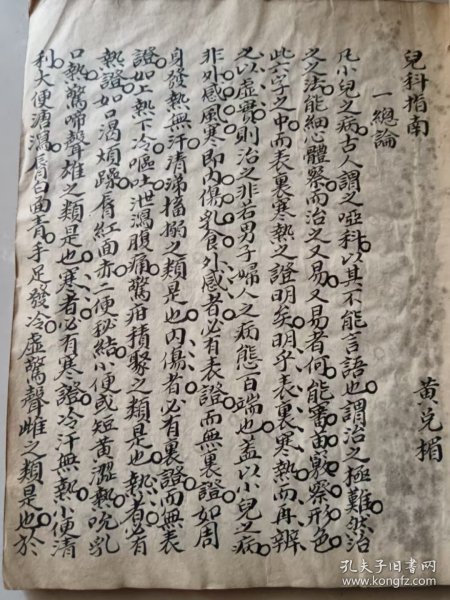 兒科指南
黃兑楣
一總論
凡小兒之病古人謂之啞科以其不能言語也謂治之極難然治
之之法能細心體察而治之又易又易者何能審面貌察形色
此六字之中而表裏寒熱之證明矣明乎表裏寒熱而再辨
之以虛實則治之非若男子婦人之病態百端也蓋以小兒之病
非外感風寒即內傷乳食外感者必有表證而無裏證如周
身發熱無汗清涕搐搦之類是也內傷者必有裏證而無表
證如上熱下冷嘔吐泄瀉腹痛驚疳積聚之類是也熱者必有
熱證如口渴煩躁唇紅面赤二便秘結小便或短黃澀熱吮乳
口熱驚啼聲雄之類是也寒者必有寒證冷汗無熱小便清
利大便溏瀉唇白面青手足發冷虛驚聲雌之類是也於
孔夫子旧书网
book.kongfz.com